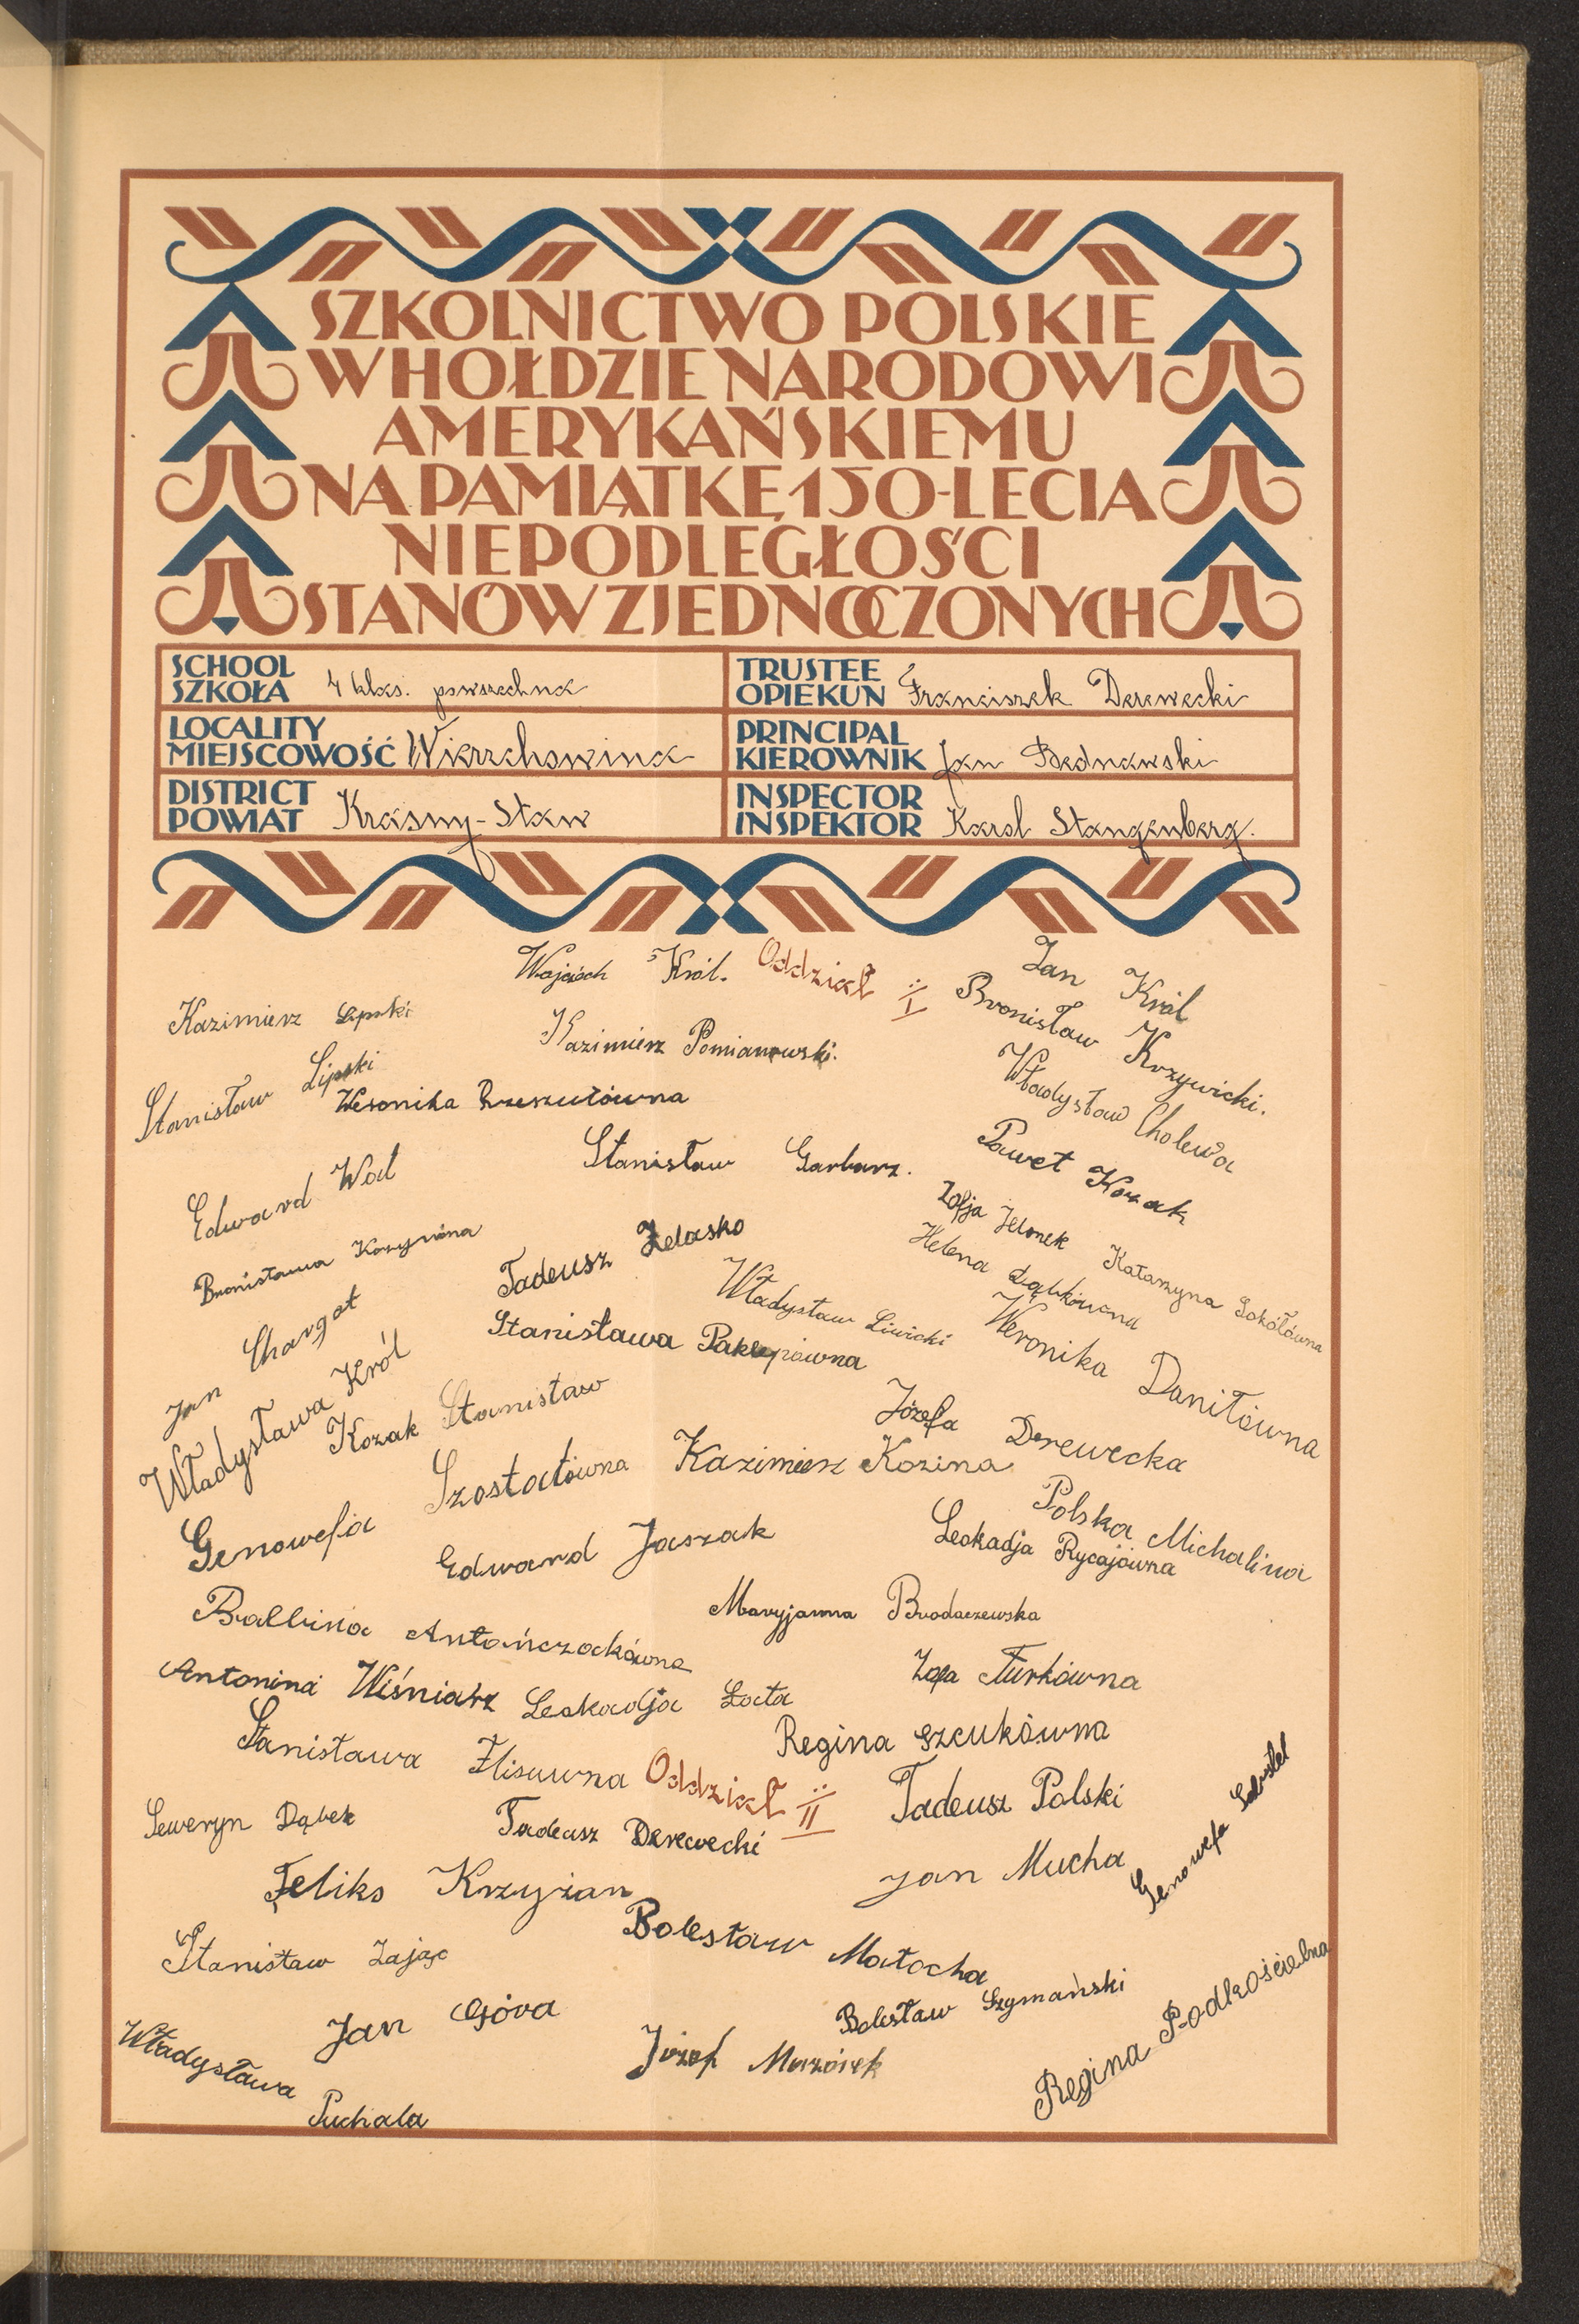 SZKOLNICTWO POLSKIE
W HOŁDZIE NARODOWI
AMERYKAŃSKIEMU
NA PAMIĄTKĘ 150-LECIA
NIEPODLEGŁOŚCI
STANÓW ZJEDNOCZONYCH
SCHOOL
SZKOŁA 4 klas. powszechna
TRUSTEE
OPIEKUN Franciszek Derewecki
LOCALITY
MIEJSCOWOŚĆ Wierzchowina
PRINCIPAL
KIEROWNIK Jan Bednawski
DISTRICT
POWIAT Krasny-Staw
INSPECTOR
INSPEKTOR Karol Stangenberg.
Wojciech Król. Oddział I
Jan Król
Kazimierz Lipski
Kazimierz Pomianowski.
Bronisław Krzywicki.
Stanisław Lipski
Weronika Rzeszutówna
Władysław Cholewa
Edward Wal
Stanisław Garbarz.
Paweł Kozak
Bronisława
Tadeusz Żelasko
Zofja Jelonek
Katarzyna Sokółówna
Helena Dąbkówna
Jan Chargot
Władysław Liwicki
Weronika Daniłówna
Władysława Król
Stanisława
Kozak Stanisław
Józefa Derewecka
Genowefa Szostakówna
Kazimierz Kozina
Polska Michalina
Edward Jaszak
Leokadja Rycajówna
Balbina Antończakówna
Maryjanna Brodaczewska
Antonina Wiśniarz
Leokadja Łata
Zofja Turkówna
Stanisława
Regina Szcukówna
Oddział II
Seweryn Dąbek
Tadeusz Derewecki
Tadeusz Polski
Feliks Krzyżan
Jan Mucha
Genowefa
Stanisław Zając
Bolesław Matocha
Jan Góra
Bolesław Szymański
Władysława Puchala
Józef Mazurek
Regina Podkościelna